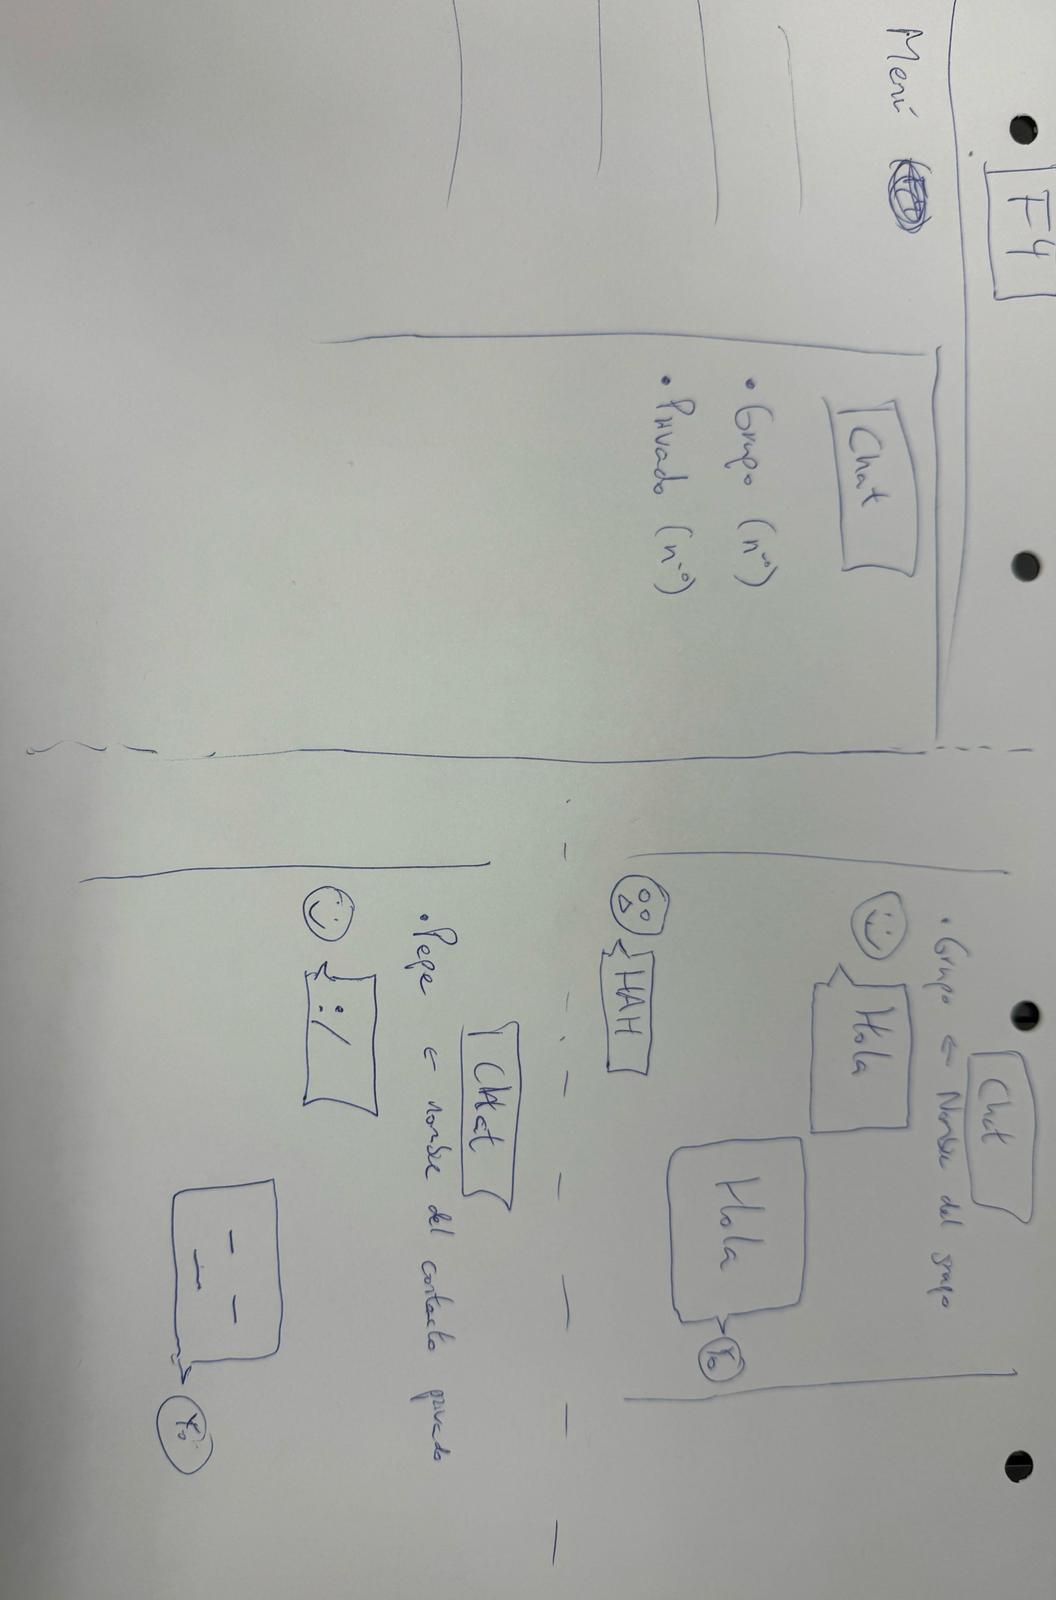 F4
Menú
Chat
• Grupo (nº)
• Privado (nº)
Chat
• Grupo ← Nombre del grupo
Hola
Hola
Yo
HAH
Chat
• Pepe ← nombre del contacto privado
:/
Yo